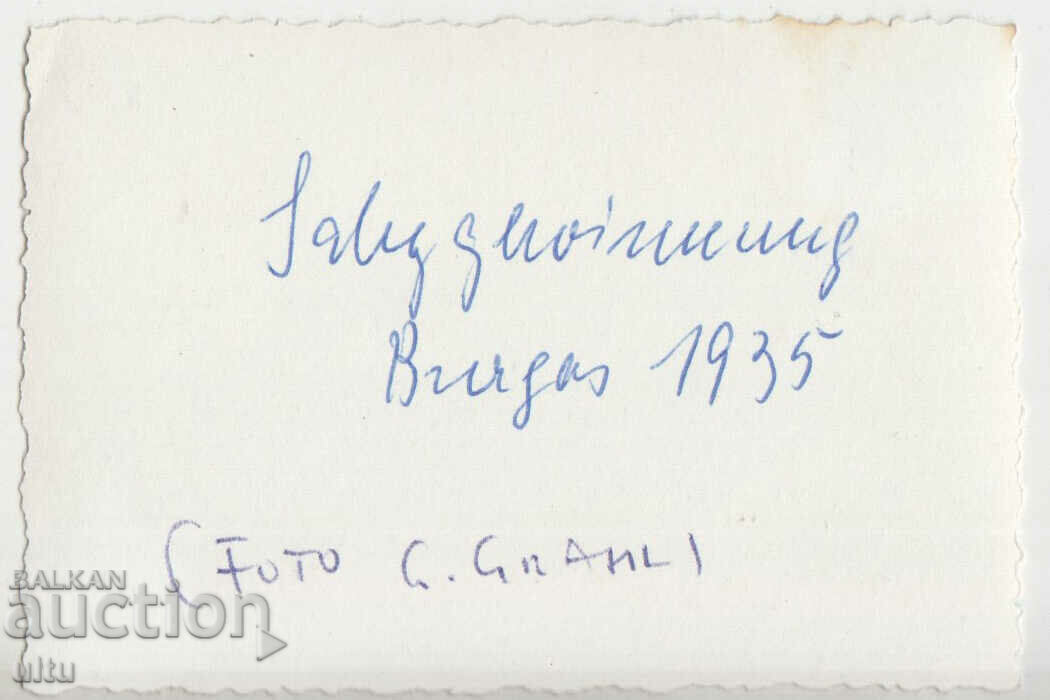 Salzgewinnung
Burgas 1935
(FOTO G. GRAHL)
BALKAN
auction
ultu